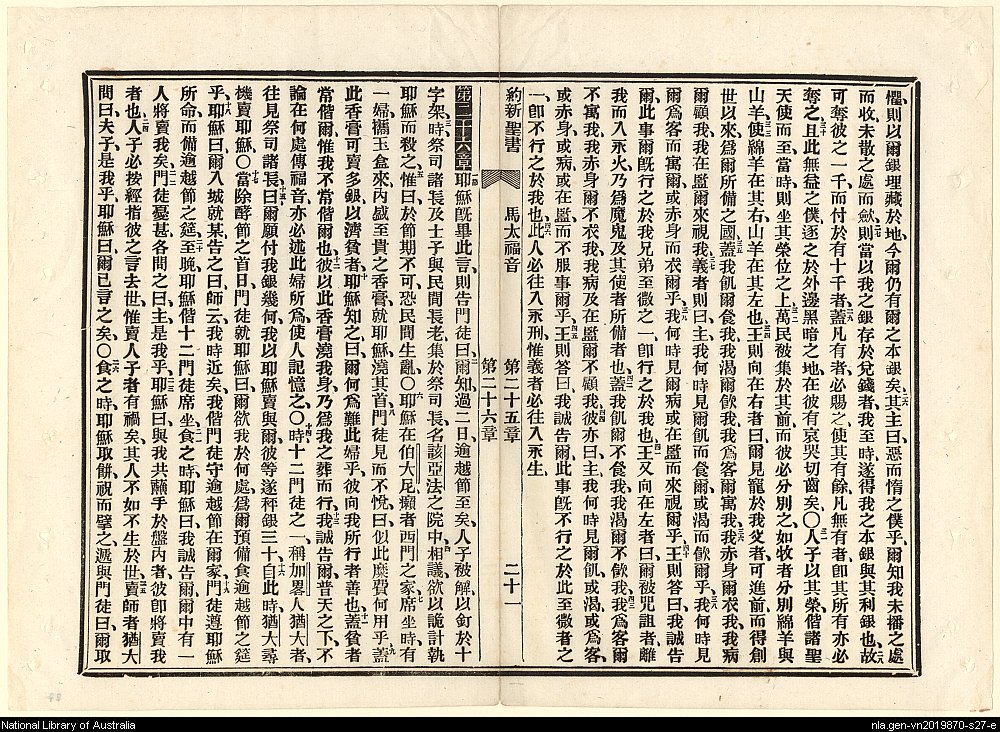 懼、則以爾銀埋藏於地、今爾仍有爾之本銀矣、其主曰、惡而惰之僕乎、爾知我未播之處
而收、未散之處而斂、則當以我之銀存於兌錢者、我至時、遂得我之本銀與其利銀也、故
可奪彼之一千、而付於有十千者、蓋凡有者必賜之、使其有餘、凡無有者、卽其所有亦必
奪之、且此無益之僕、逐之於外邊黑暗之地、在彼有哀哭切齒矣、〇人子以其榮、偕諸聖
天使而至、當時則坐其榮位之上、萬民被集於其前、而彼必分別之、如牧者分別綿羊與
山羊、使綿羊在其右、山羊在其左也、王則向在右者曰、爾見寵於我父者、可進前、而得創
世以來爲爾所備之國、蓋我飢爾食我、我渴爾飲我、我爲客爾寓我、我赤身爾衣我、我病
爾顧我、我在監爾來視我、義者則曰、主、我何時見爾飢而食爾、或渴而飲爾乎、我何時見
爾爲客而寓爾、或赤身而衣爾乎、我何時見爾病、或在監而來視爾乎、王則答曰、我誠告
爾、此事爾旣行之於我兄弟至微之一、卽行之於我也、王又向在左者曰、爾被咒詛者、離
我而入永火、乃爲魔鬼及其使者所備者也、蓋我飢爾不食我、我渴爾不飲我、我爲客爾
不寓我、我赤身爾不衣我、我病及在監爾不顧我、彼亦曰、主、我何時見爾飢、或渴、或爲客、
或赤身、或病、或在監、而不服事爾乎、王則答曰、我誠告爾、此事旣不行之於此至微者之
一、卽不行之於我也、此人必往入永刑、惟義者必往入永生
約新聖書 馬太福音 第二十五章 第二十六章 二十一
第二十六章 耶穌旣畢此言、則告門徒曰、爾知過二日、逾越節至矣、人子被解以釘於十
字架、時祭司諸長、及士子、與民間長老、集於祭司長名該亞法之院中、相議、欲以詭計執
耶穌而殺之、惟曰、於節期不可、恐民間生亂、〇耶穌在伯大尼、癩者西門之家、席坐時、有
一婦攜玉盒來、內盛至貴之香膏、就耶穌澆其首、門徒見而不悅、曰、似此糜費何用乎、蓋
此香膏可賣多銀、以濟貧者、耶穌知之曰、爾何爲難此婦乎、彼向我所行者善也、蓋貧者
常偕爾、惟我不常偕爾也、彼以此香膏澆我身、乃爲我之葬而行、我誠告爾、普天之下、不
論在何處傳福音、亦必述此婦所爲、使人記憶之、〇時十二門徒之一、稱加畧人猶大者、
往見祭司諸長曰、爾願付我銀幾何、我以耶穌賣與爾、彼等遂秤銀三十、自此時猶大尋
機賣耶穌、〇當除酵節之首日、門徒就耶穌曰、爾欲我於何處爲爾預備食逾越節之筵
乎、耶穌曰、爾入城、就某告之曰、師云、我時近矣、我偕門徒守逾越節在爾家、門徒遵耶穌
所命、而備逾越節之筵、至晚、耶穌偕十二門徒席坐、食之時、耶穌曰、我誠告爾、爾中有一
人將賣我矣、門徒憂甚、各問之曰、主、是我乎、耶穌曰、與我共蘸手於盤內者、彼卽將賣我
者也、人子必按經指彼之言去世、惟賣人子者有禍矣、其人不如不生於世、賣師者猶大
問曰、夫子、是我乎、耶穌曰、爾已言之矣、〇食之時、耶穌取餅、祝而擘之、遞與門徒曰、爾取
National Library of Australia
nla.gen-vn2019870-s27-e